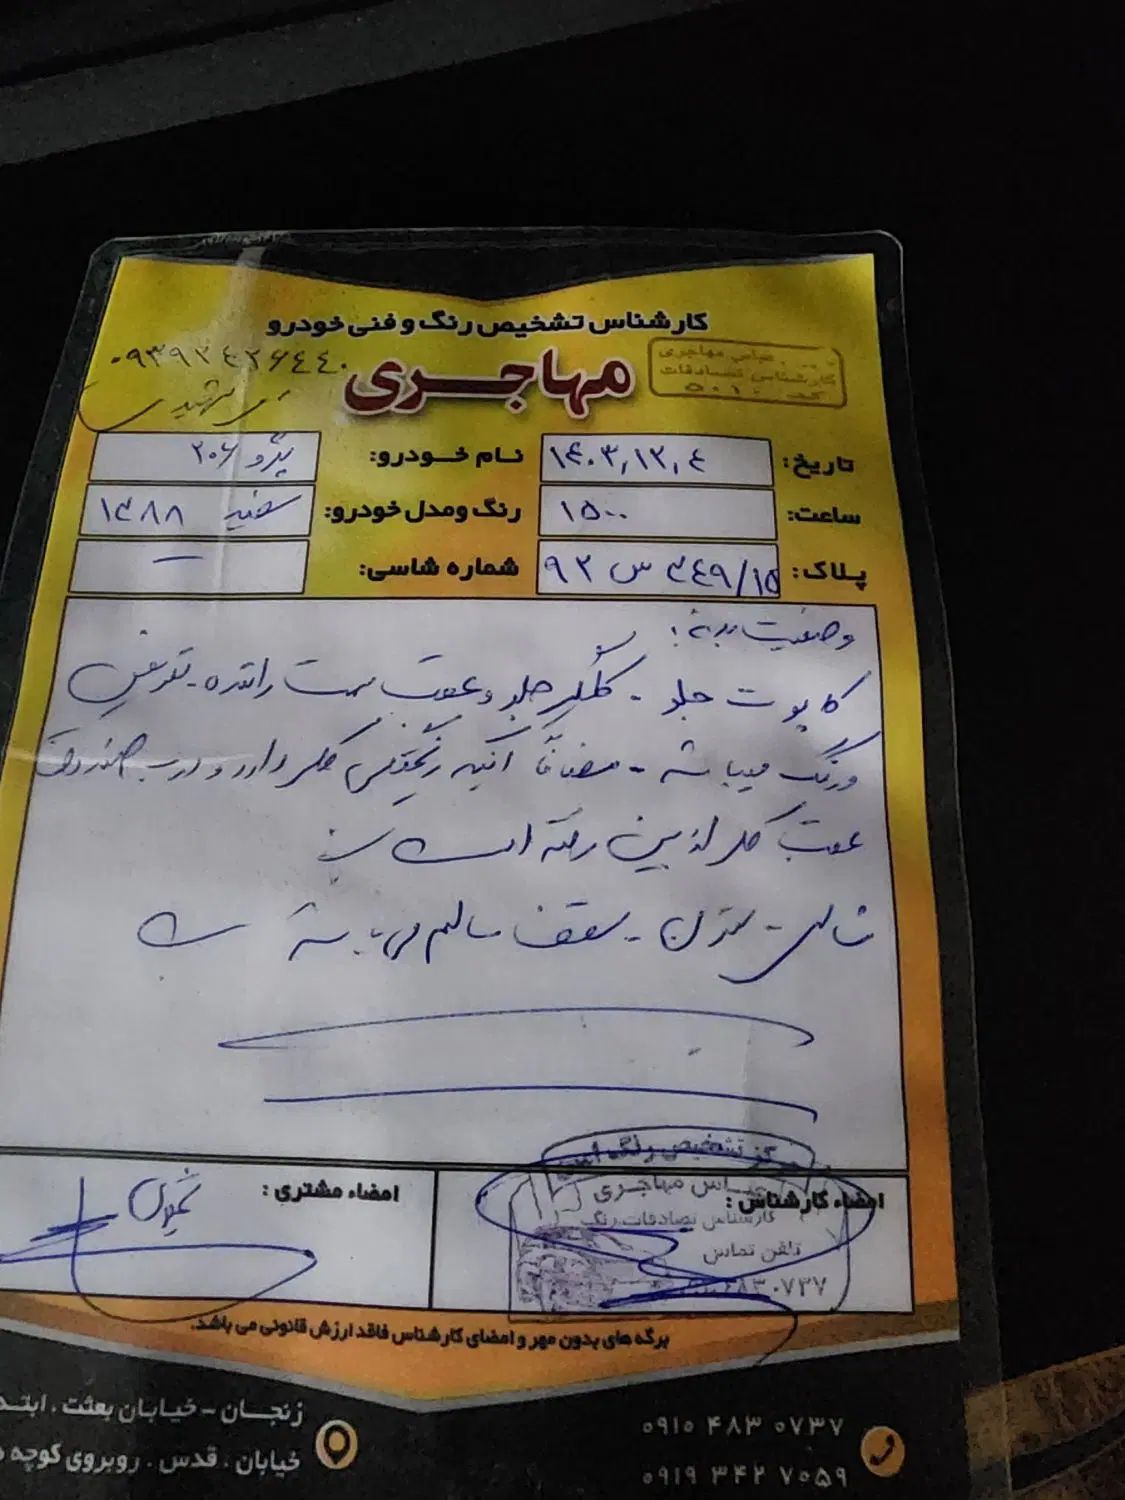 کارشناس تشخیص رنگ و فنی خودرو
مهاجری
عباس مهاجری
کارشناس تصادفات
۰۹۳۹۲۴۲۶۴۴۰
تاریخ: ۱۴۰۳,۱۲,۴
نام خودرو: پژو ۲۰۶
ساعت: ۱۵۰۰
رنگ و مدل خودرو: سفید ۱۳۸۸
پلاک: ۳۴۹/۱۵ س ۹۲
شماره شاسی: —
وضعیت بدنه:
کاپوت جلو - گلگیر جلو و عقب سمت راننده - تعویض
و رنگ میباشد - مضافاً آنکه رنگ دارد و درب صندوق
عقب از بین رفته است
شاسی - ستون - سقف سالم می باشد
امضاء کارشناس:
مرکز تشخیص رنگ
عباس مهاجری
کارشناس تصادفات رنگ
تلفن تماس
امضاء مشتری:
برگه های بدون مهر و امضای کارشناس فاقد ارزش قانونی می باشد.
زنجان - خیابان بعثت . ابتد
خیابان . قدس . روبروی کوچه
۰۹۱۰ ۴۸۳ ۰۷۳۷
۰۹۱۹ ۳۴۲ ۷۰۵۹